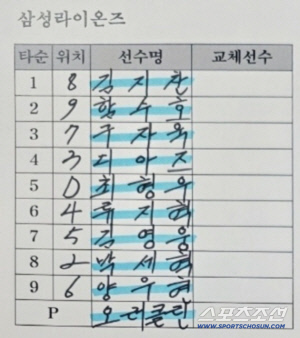 삼성라이온즈
타순 위치 선수명 교체선수
1 8 김지찬
2 9 함수호
3 7 구자욱
4 3 디아즈
5 D 최형우
6 4 류지혁
7 5 김영웅
8 2 박세혁
9 6 양우현
P 오러클린
스포츠조선
www.sportschosun.com